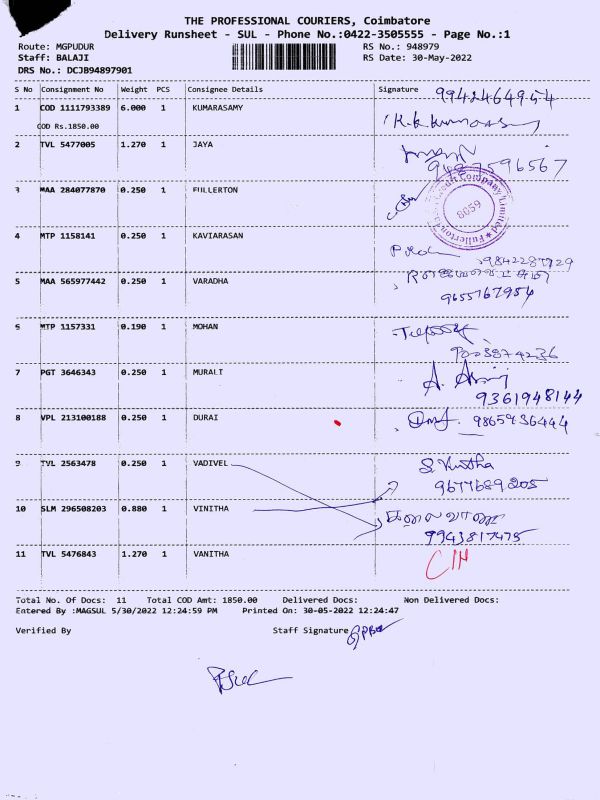 THE PROFESSIONAL COURIERS, Coimbatore
Delivery Runsheet - SUL - Phone No.:0422-3505555 - Page No.:1
Route: MGPUDUR RS No.: 948979
Staff: BALAJI RS Date: 30-May-2022
DRS No.: DCJB94897901
S No Consignment No Weight PCS Consignee Details Signature
9942464954
1 COD 1111793389 6.000 1 KUMARASAMY
COD Rs.1850.00
2 TVL 5477005 1.270 1 JAYA
9487596567
3 MAA 284077870 0.250 1 FULLERTON
Company Limited * Fullerton
8059
4 MTP 1158141 0.250 1 KAVIARASAN
9842287729
5 MAA 565977442 0.250 1 VARADHA
9655767954
6 MTP 1157331 0.190 1 MOHAN
7 PGT 3646343 0.250 1 MURALI
9361948144
8 VPL 213100188 0.250 1 DURAI 9865936444
9 TVL 2563478 0.250 1 VADIVEL
9677689205
10 SLM 296508203 0.880 1 VINITHA கலைவாணி
9943817475
11 TVL 5476843 1.270 1 VANITHA
Total No. Of Docs: 11 Total COD Amt: 1850.00 Delivered Docs: Non Delivered Docs:
Entered By :MAGSUL 5/30/2022 12:24:59 PM Printed On: 30-05-2022 12:24:47
Verified By Staff Signature